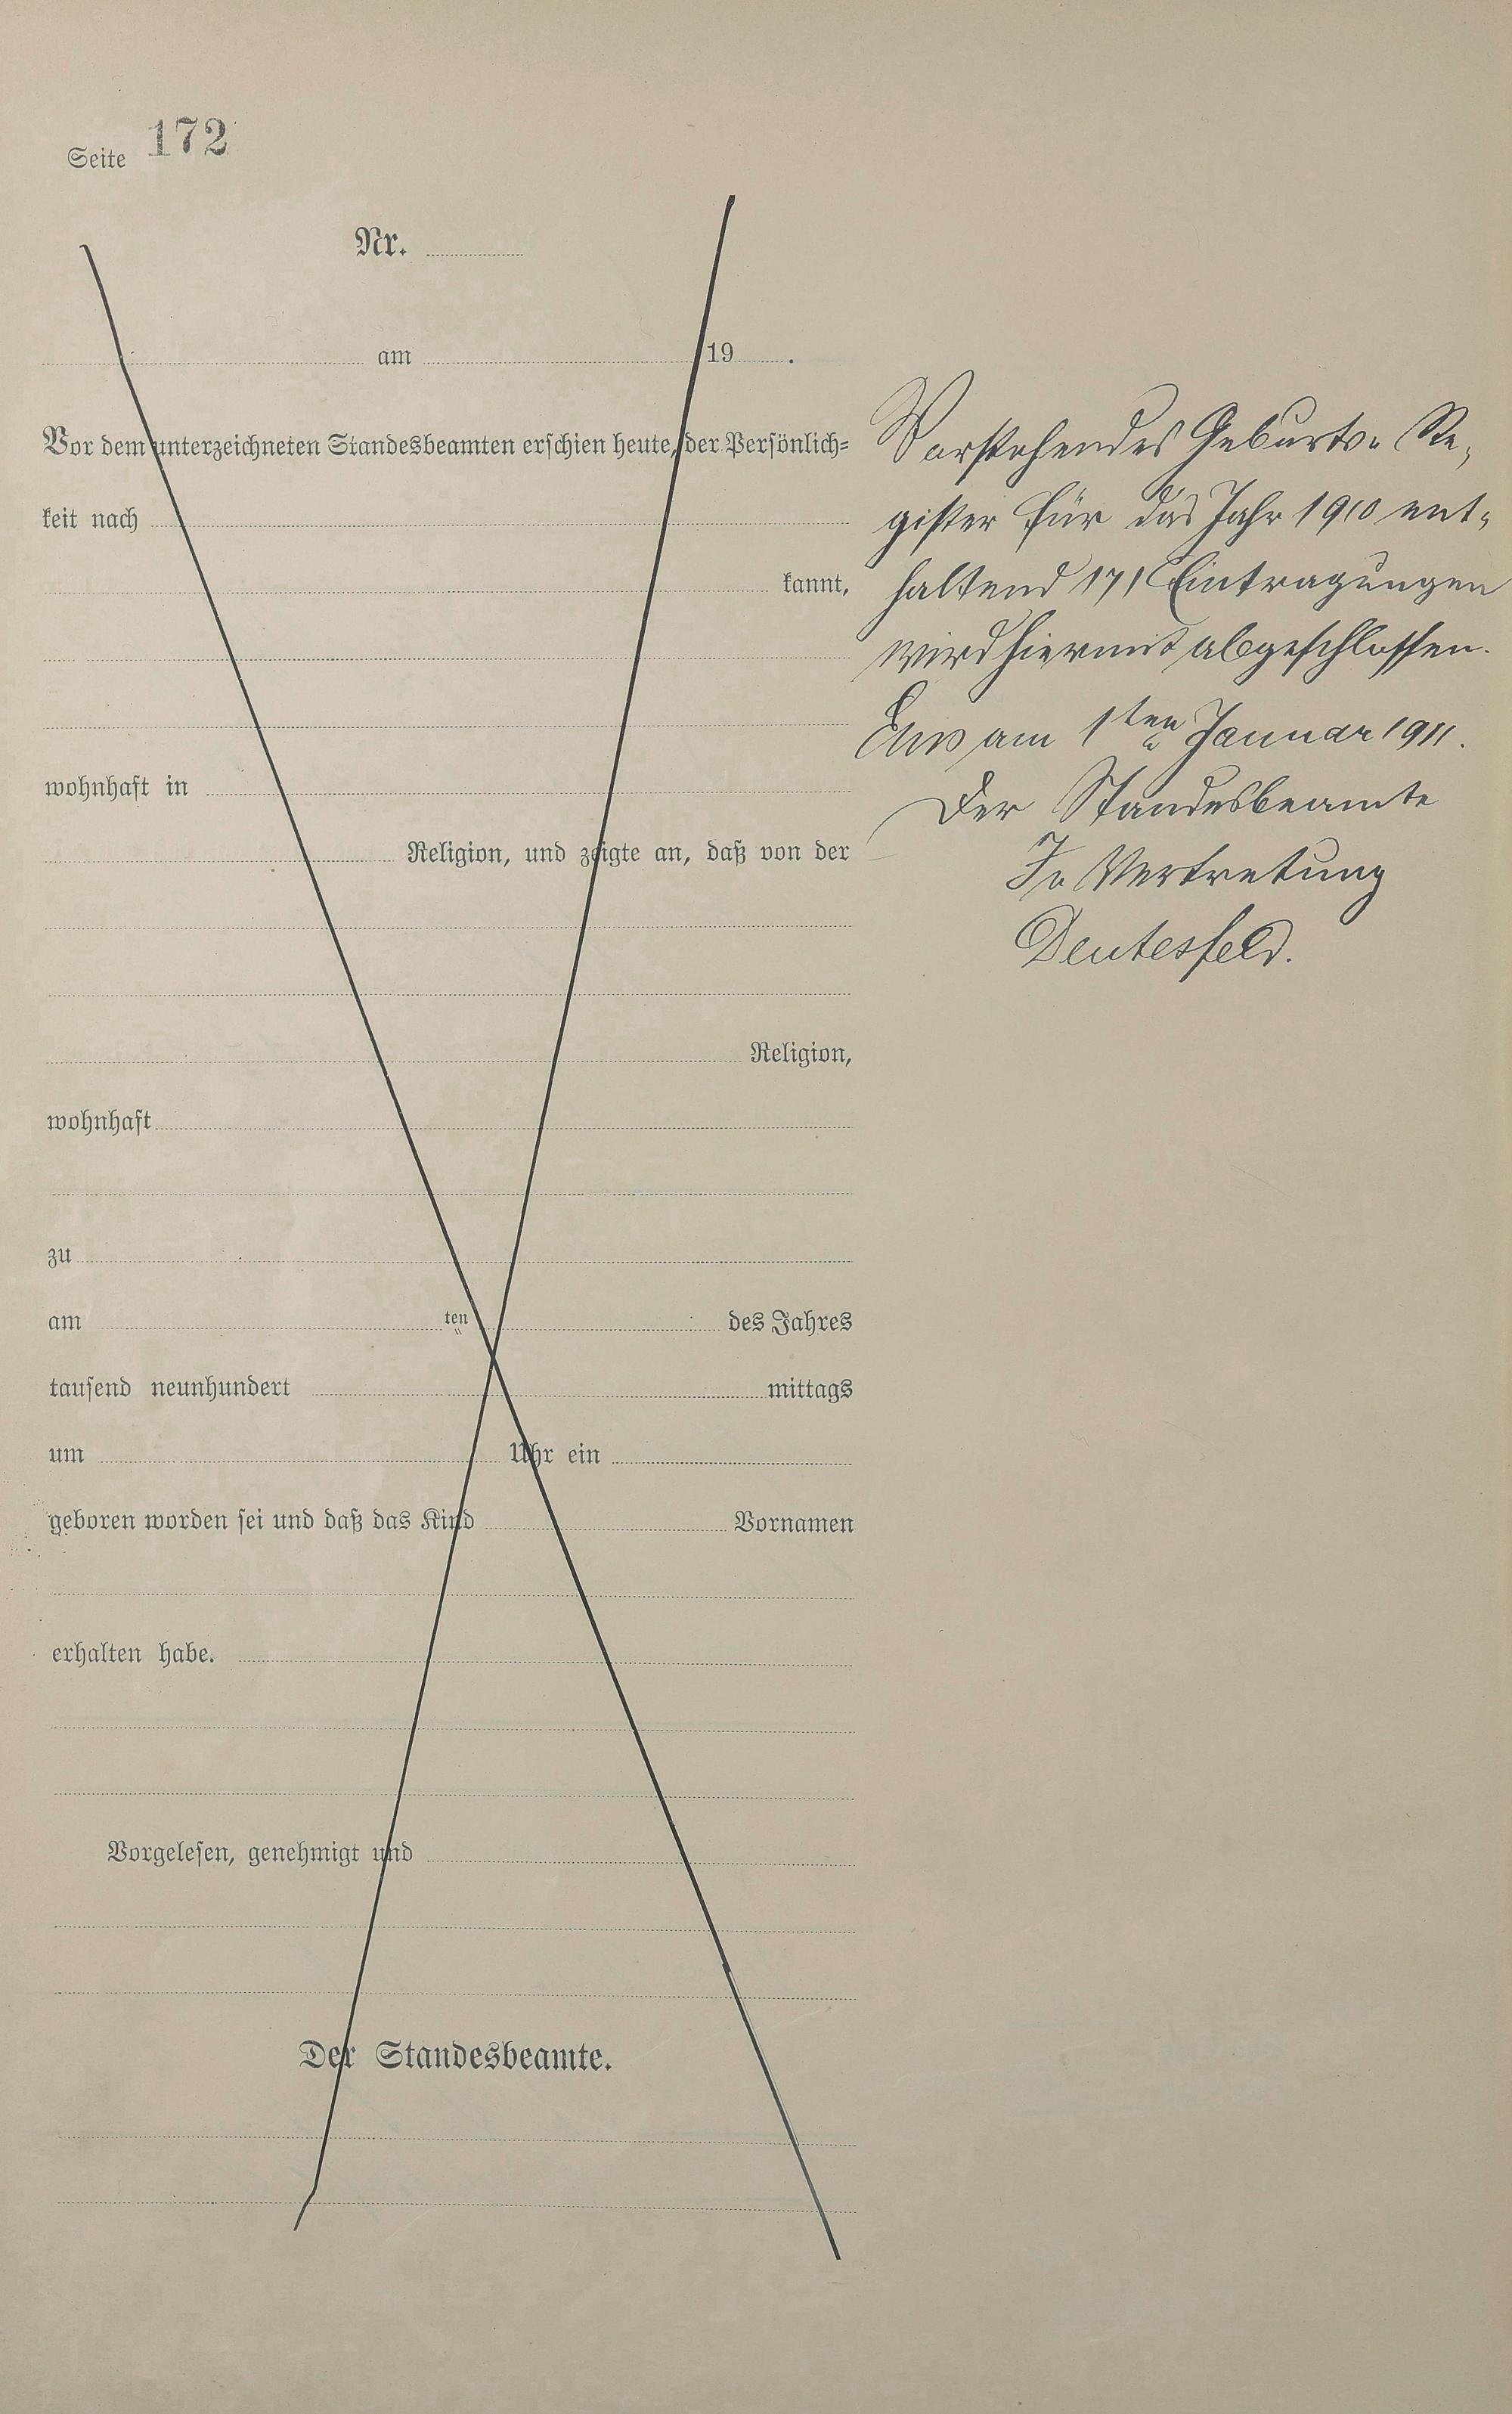 Seite 172
Nr.
am 19 .
Vor dem unterzeichneten Standesbeamten erschien heute, der Persönlich=
keit nach
kannt,
wohnhaft in
Religion, und zeigte an, daß von der
Religion,
wohnhaft
zu
am ten des Jahres
tausend neunhundert mittags
um Uhr ein
geboren worden sei und daß das Kind Vornamen
erhalten habe.
Vorgelesen, genehmigt und
Der Standesbeamte.
Vorstehendes Geburts-Re-
gister für das Jahr 1910 ent-
haltend 171 Eintragungen
wird hiermit abgeschlossen.
Ems am 1ten Januar 1911.
Der Standesbeamte
In Vertretung
Deutesfeld.